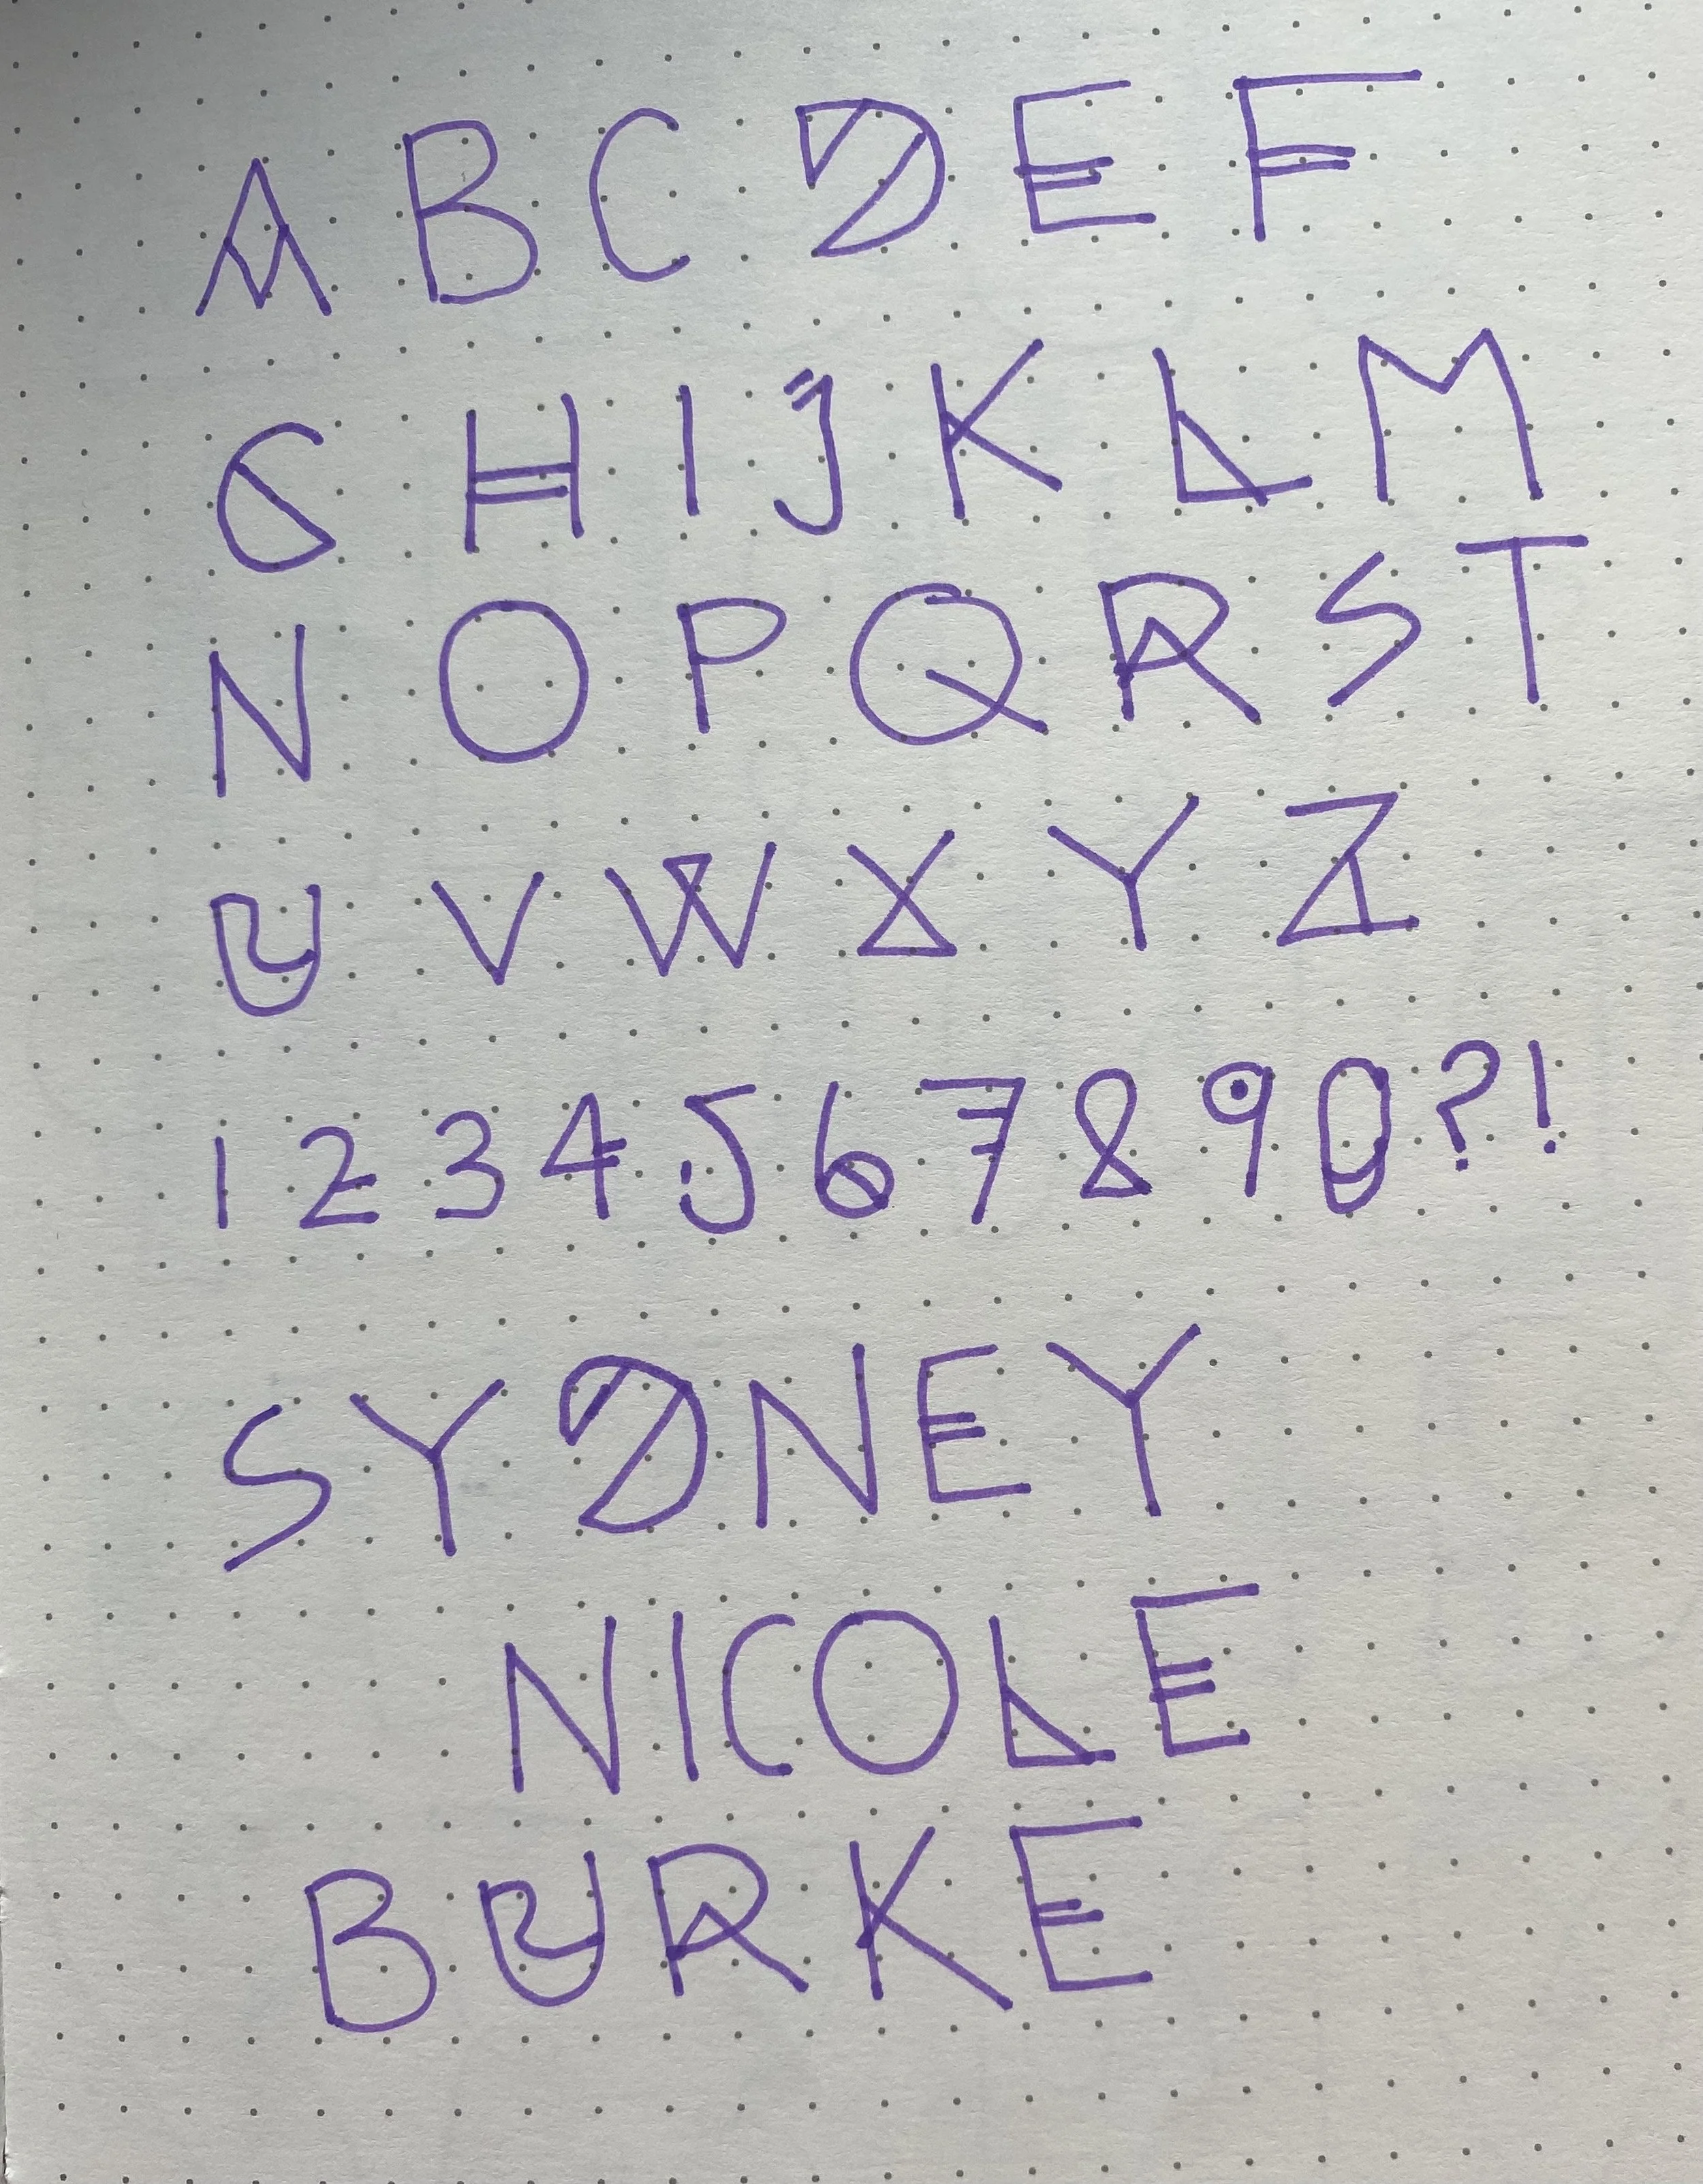 A B C D E F
G H I J K L M
N O P Q R S T
U V W X Y Z
1 2 3 4 5 6 7 8 9 0 ? !
SYDNEY
NICOLE
BURKE